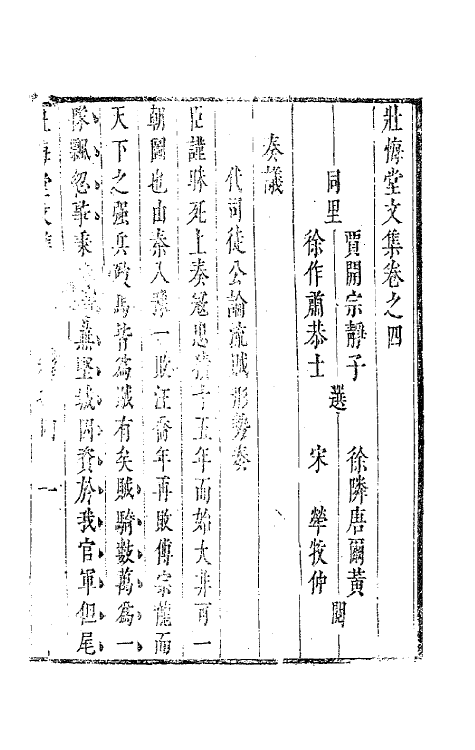 壯悔堂文集卷之四
賈開宗靜子　徐隣唐爾黃
同里　選　閱
徐作肅恭士　宋犖牧仲
奏議
代司徒公論流賊形勢奏
臣謹昧死上奏寇患積十五年而始大非可一
朝圖也由秦入豫一敗汪喬年再敗傅宗龍而
天下之强兵勁馬皆爲賊有矣賊騎數萬爲一
隊飄忽無堅城因資於我官軍但尾
四　一